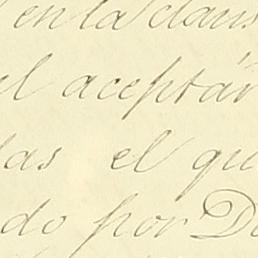 en la claus
el aceptár
das el qu
do por D